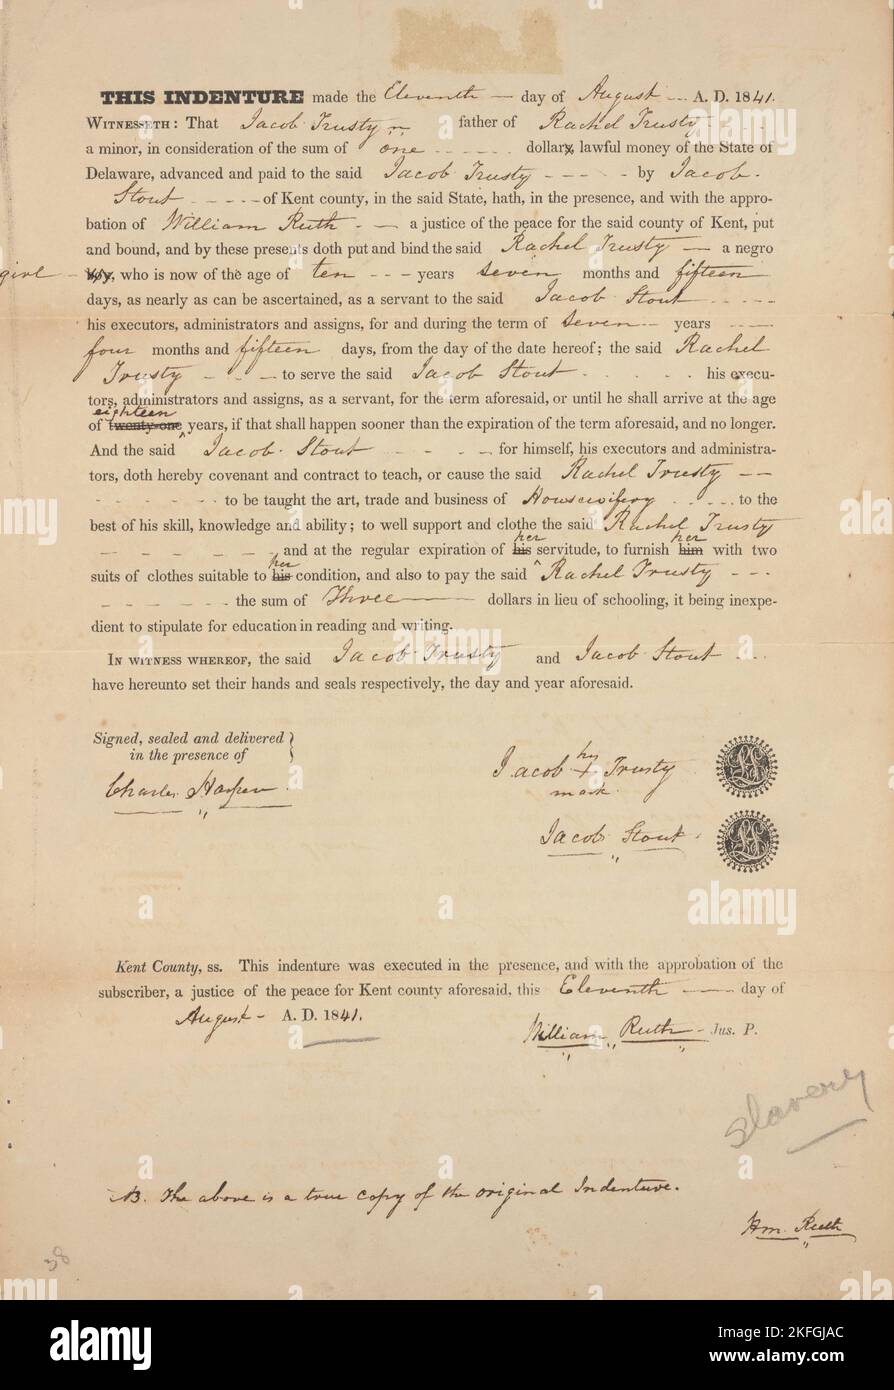 THIS INDENTURE made the Eleventh — day of August — A. D. 1841.
WITNESSETH: That Jacob Trusty father of Rachel Trusty
a minor, in consideration of the sum of one dollars, lawful money of the State of
Delaware, advanced and paid to the said Jacob Trusty by Jacob
Stout of Kent county, in the said State, hath, in the presence, and with the appro-
bation of William Ruth — a justice of the peace for the said county of Kent, put
and bound, and by these presents doth put and bind the said Rachel Trusty — a negro
girl — boy, who is now of the age of ten years seven months and fifteen
days, as nearly as can be ascertained, as a servant to the said Jacob Stout
his executors, administrators and assigns, for and during the term of seven years
four months and fifteen days, from the day of the date hereof; the said Rachel
Trusty to serve the said Jacob Stout his execu-
tors, administrators and assigns, as a servant, for the term aforesaid, or until he shall arrive at the age
eighteen
of twenty-one years, if that shall happen sooner than the expiration of the term aforesaid, and no longer.
And the said Jacob Stout for himself, his executors and administra-
tors, doth hereby covenant and contract to teach, or cause the said Rachel Trusty
to be taught the art, trade and business of Housewifery to the
best of his skill, knowledge and ability; to well support and clothe the said Rachel Trusty
her her
and at the regular expiration of his servitude, to furnish him with two
her
suits of clothes suitable to his condition, and also to pay the said Rachel Trusty
the sum of Three dollars in lieu of schooling, it being inexpe-
dient to stipulate for education in reading and writing.
IN WITNESS WHEREOF, the said Jacob Trusty and Jacob Stout
have hereunto set their hands and seals respectively, the day and year aforesaid.
Signed, sealed and delivered
in the presence of
Charles Harper
his
Jacob + Trusty
mark
Jacob Stout
Kent County, ss. This indenture was executed in the presence, and with the approbation of the
subscriber, a justice of the peace for Kent county aforesaid, this Eleventh — day of
August — A. D. 1841.
William Ruth — Jus. P.
Slavery
NB. The above is a true copy of the original Indenture.
Wm. Ruth
38
alamy
Image ID: 2KFGJAC
www.alamy.com